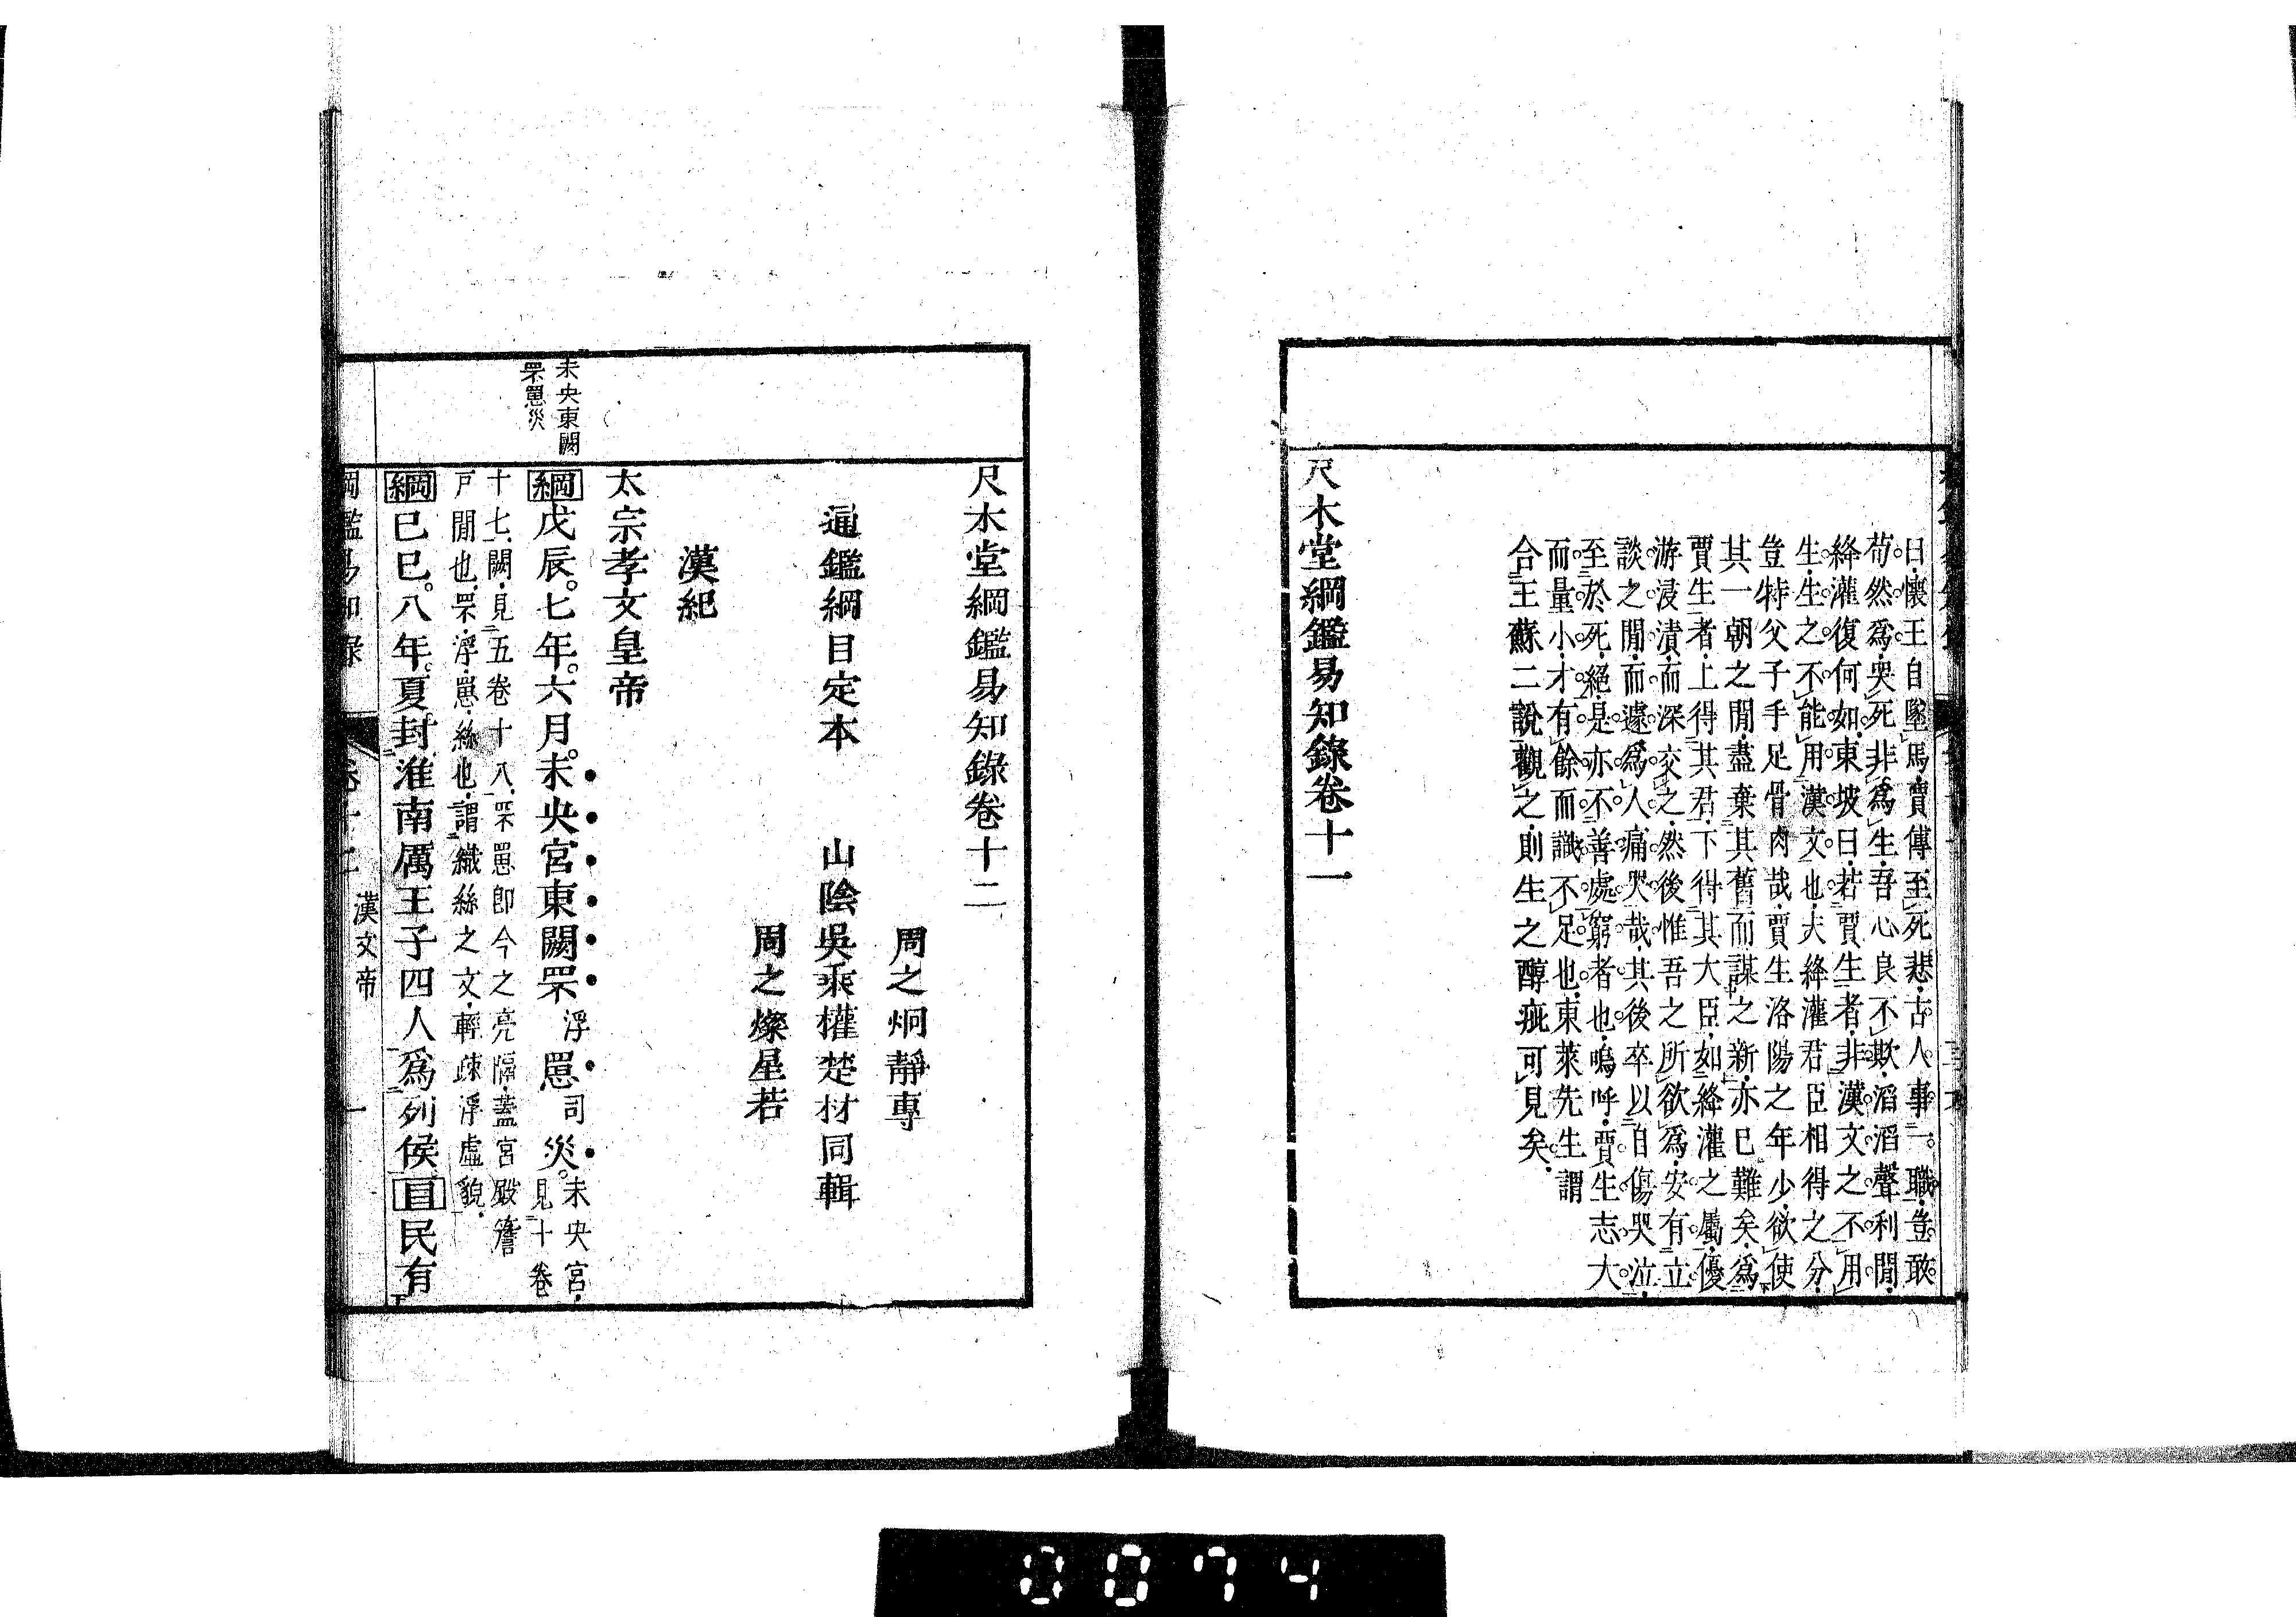 曰懷王自墜馬賈傅至死悲古人事一職豈敢
苟然爲哭死非爲生吾心良不欺滔滔聲利閒
絳灌復何如東坡曰若賈生者非漢文之不用
生生之不能用漢文也夫絳灌君臣相得之分
豈特父子手足骨肉哉賈生洛陽之年少欲使
其一朝之閒盡棄其舊而謀之新亦已難矣爲
賈生者上得其君下得其大臣如絳灌之屬優
游浸漬而深交之然後惟吾之所欲爲安有立
談之閒而遽爲人痛哭哉其後卒以自傷哭泣
至於死絕是亦不善處窮者也嗚呼賈生志大
而量小才有餘而識不足也東萊先生謂
合王蘇二說觀之則生之醇疵可見矣
尺木堂綱鑑易知錄卷十一
尺木堂綱鑑易知錄卷十二
周之炯靜專
通鑑綱目定本 山陰吳乘權楚材同輯
周之燦星若
漢紀
太宗孝文皇帝
未央東闕
罘罳災
綱戊辰。七年。六月。未央宮東闕罘浮罳司災。未央宮見十卷
十七闕見五卷十八罘罳卽今之亮隔蓋宮殿簷
戸閒也罘浮罳絲也謂織絲之文輕疎浮虛貌
綱己巳。八年。夏封淮南厲王子四人爲列侯目民有
綱鑑易知錄 卷十二 漢文帝 一
0074